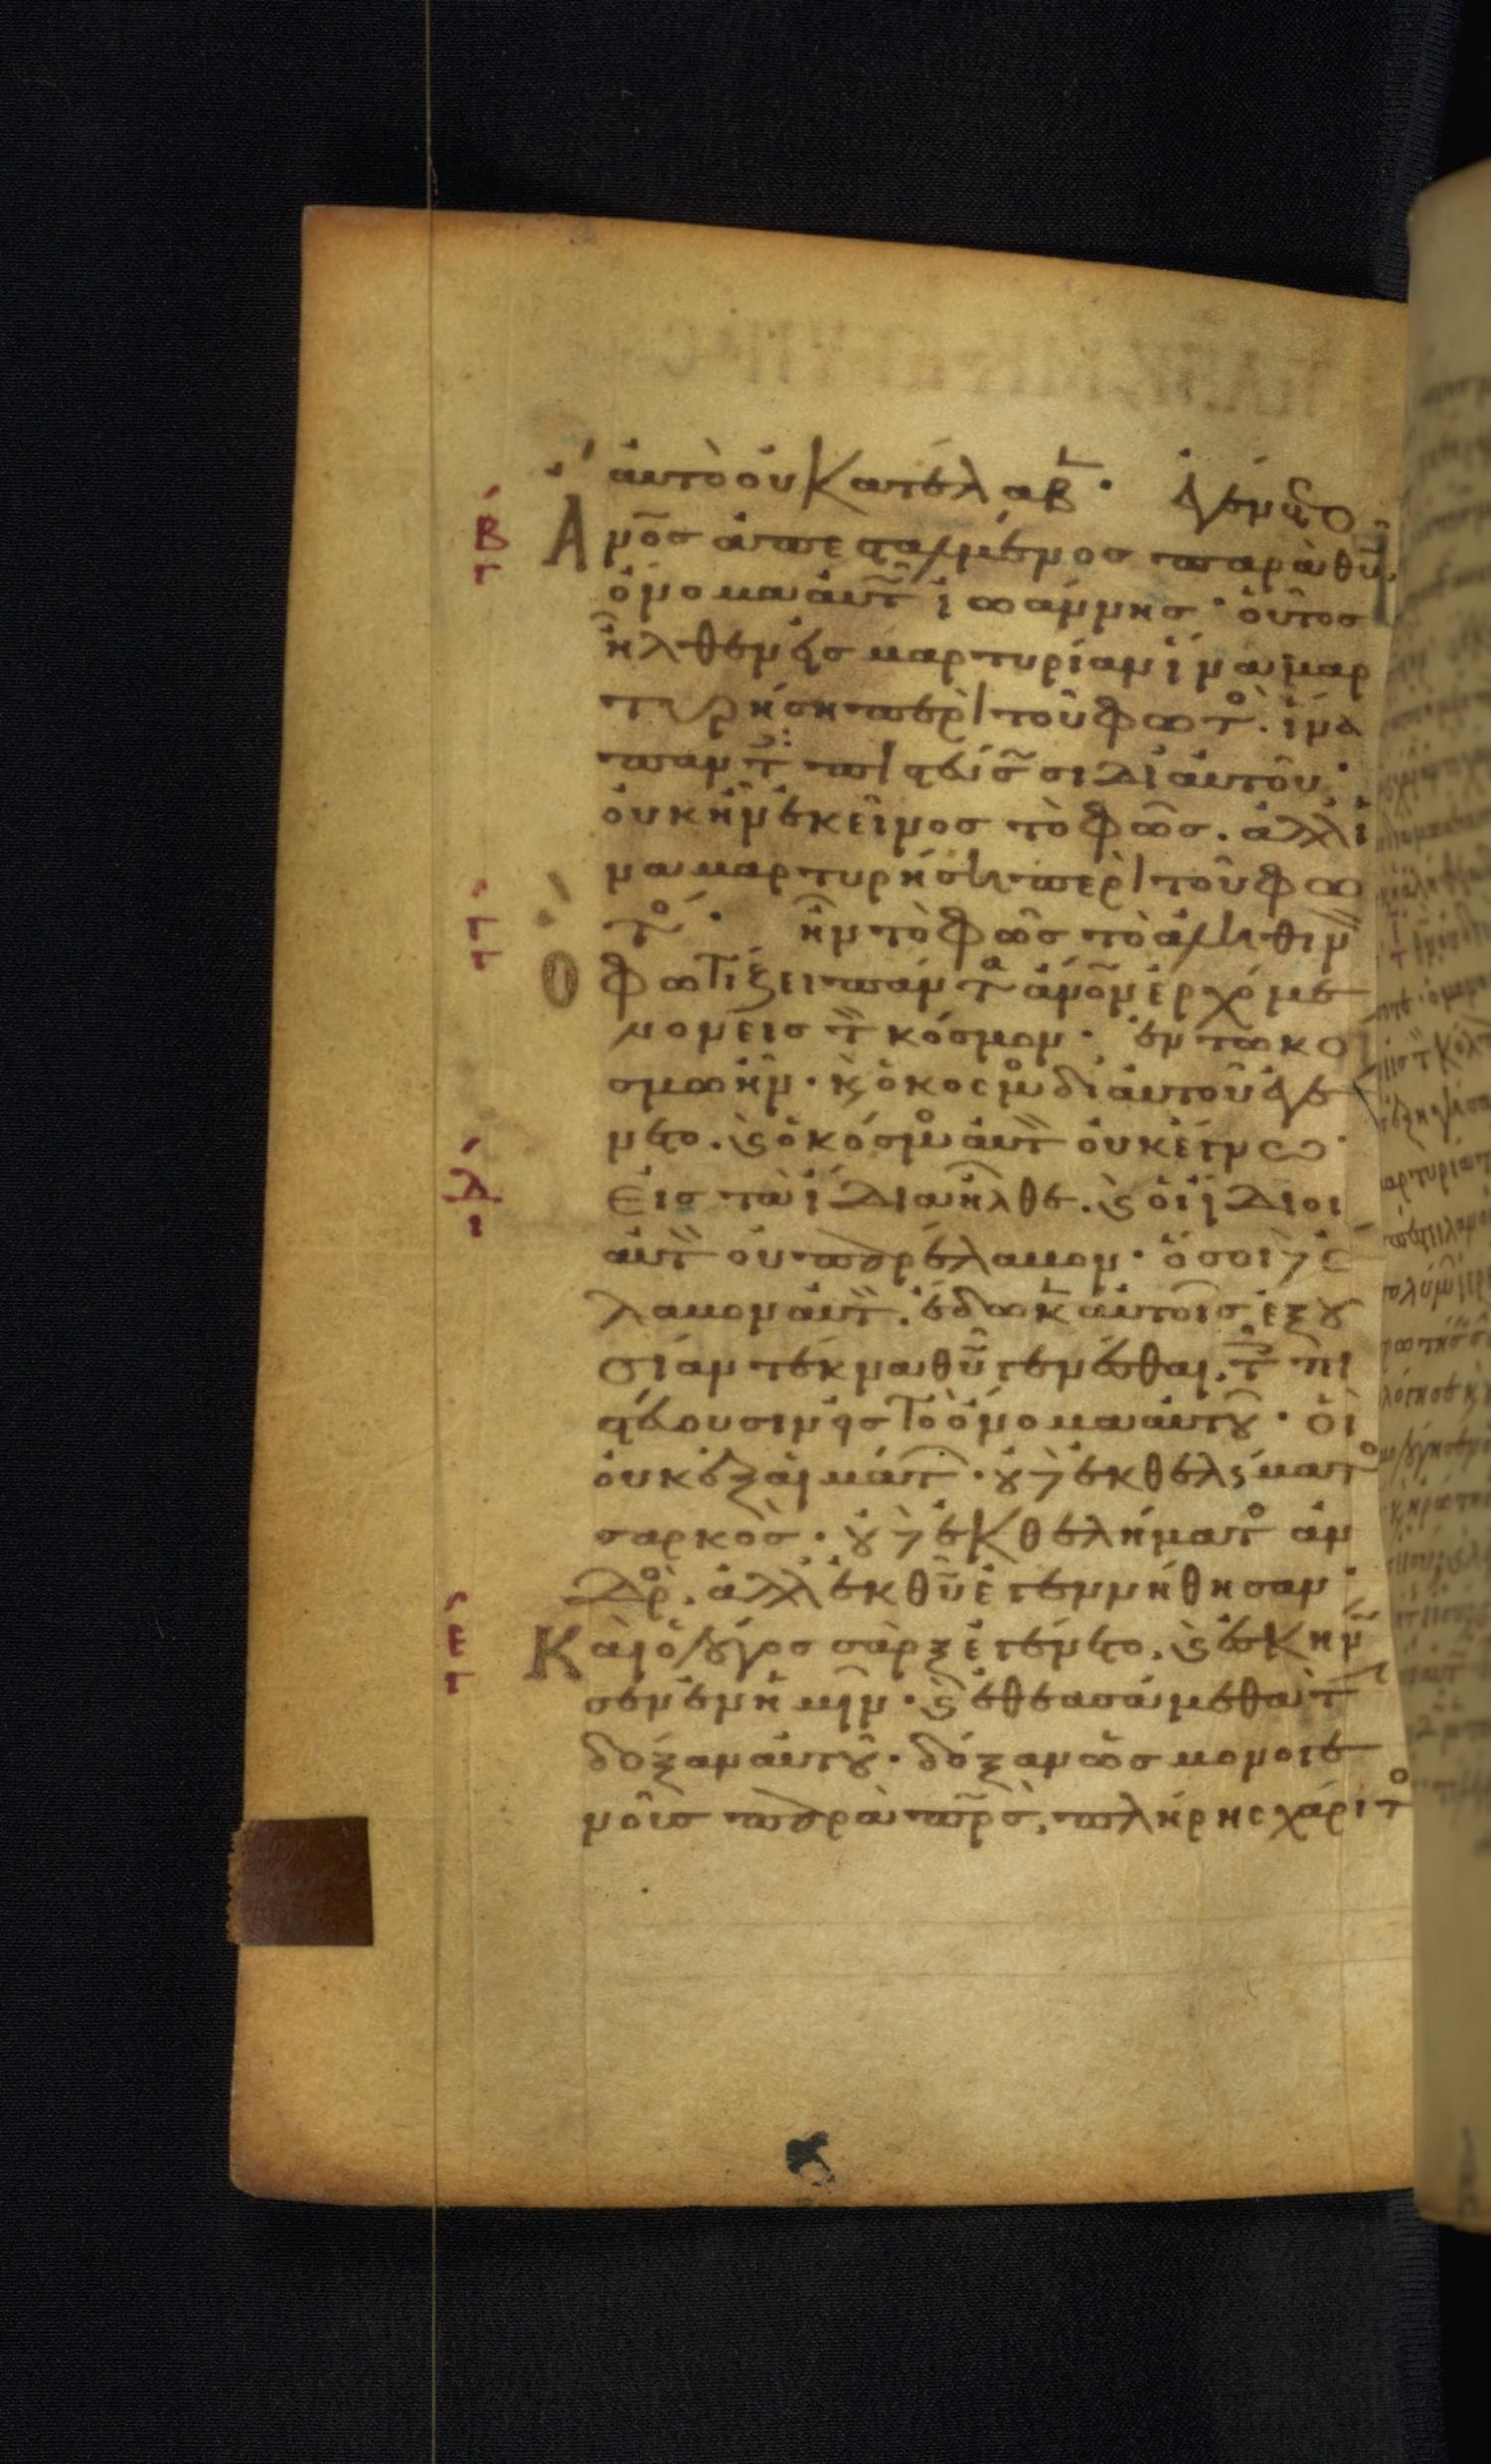 αυτὸ οὐ κατέλαβ· ἐγένετο
Β
Γ
Ανο̅σ ἀπεσταλμένοσ παρὰ θυ̅,
ὄνομα αὐτ ἰωάννησ· οὗτοσ
ἦλθεν εἰσ μαρτυρίαν ἵνα μαρ
τυρήση περὶ τοῦ φωτο. ἵνα
παντ πιστεύσωσι δι αὐτοῦ·
οὐκ ἦν ἐκεῖνοσ τὸ φῶσ. ἀλλ ἵ
να μαρτυρήση περὶ τοῦ φω
Γ
Γ
το· ἦν τὸ φῶσ τὸ ἀληθιν
Ὃ φωτίζει πάντα ἀνο̅ν ἐρχόμε
νον εἰσ τ κόσμον· ἐν τῶ κο
σμω ἦν· κ ὁ κοσμο δι αὐτοῦ ἐγέ
νετο. κ ὁ κόσμο αὐτ οὐκ ἔγνω·
Δ
Ι
Εἰσ τὰ ἴδια ἦλθε. κ οἱ ἴδιοι
αὐτ οὐ παρέλαβον· ὅσοι δὲ
λαβον αὐτ. ἔδωκ αὐτοῖσ ἐξου
σίαν τέκνα θυ̅ γενέσθαι. τ πι
στεύουσιν εἰσ τὸ ὄνομα αὐτου· οἳ
οὐκ ἐξ αἱμάτ· οὐδὲ ἐκ θελήματο
σαρκὸσ· οὐδὲ ἐκ θελήματο ἀν
δρο. ἀλλ ἐκ θυ̅ ἐγεννήθησαν·
Ε
Γ
Καὶ ὁ λόγοσ σὰρξ ἐγένετο. κ ἐσκήν
σεν ἐν ἡμῖν· κ ἐθεασάμεθα τ
δόξαν αὐτου· δόξαν ὡσ μονογε
νοῦσ παρὰ πρσ̅, πλήρησ χάριτο